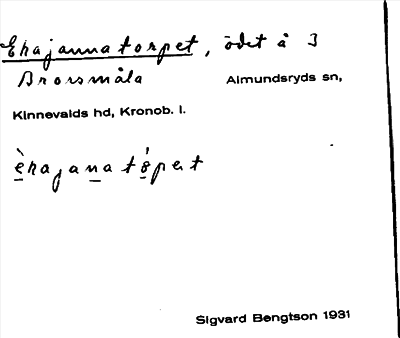 Ekajannatorpet, ödet å 3
Brorsmåla Almundsryds sn,
Kinnevalds hd, Kronob. l.
Sigvard Bengtson 1931